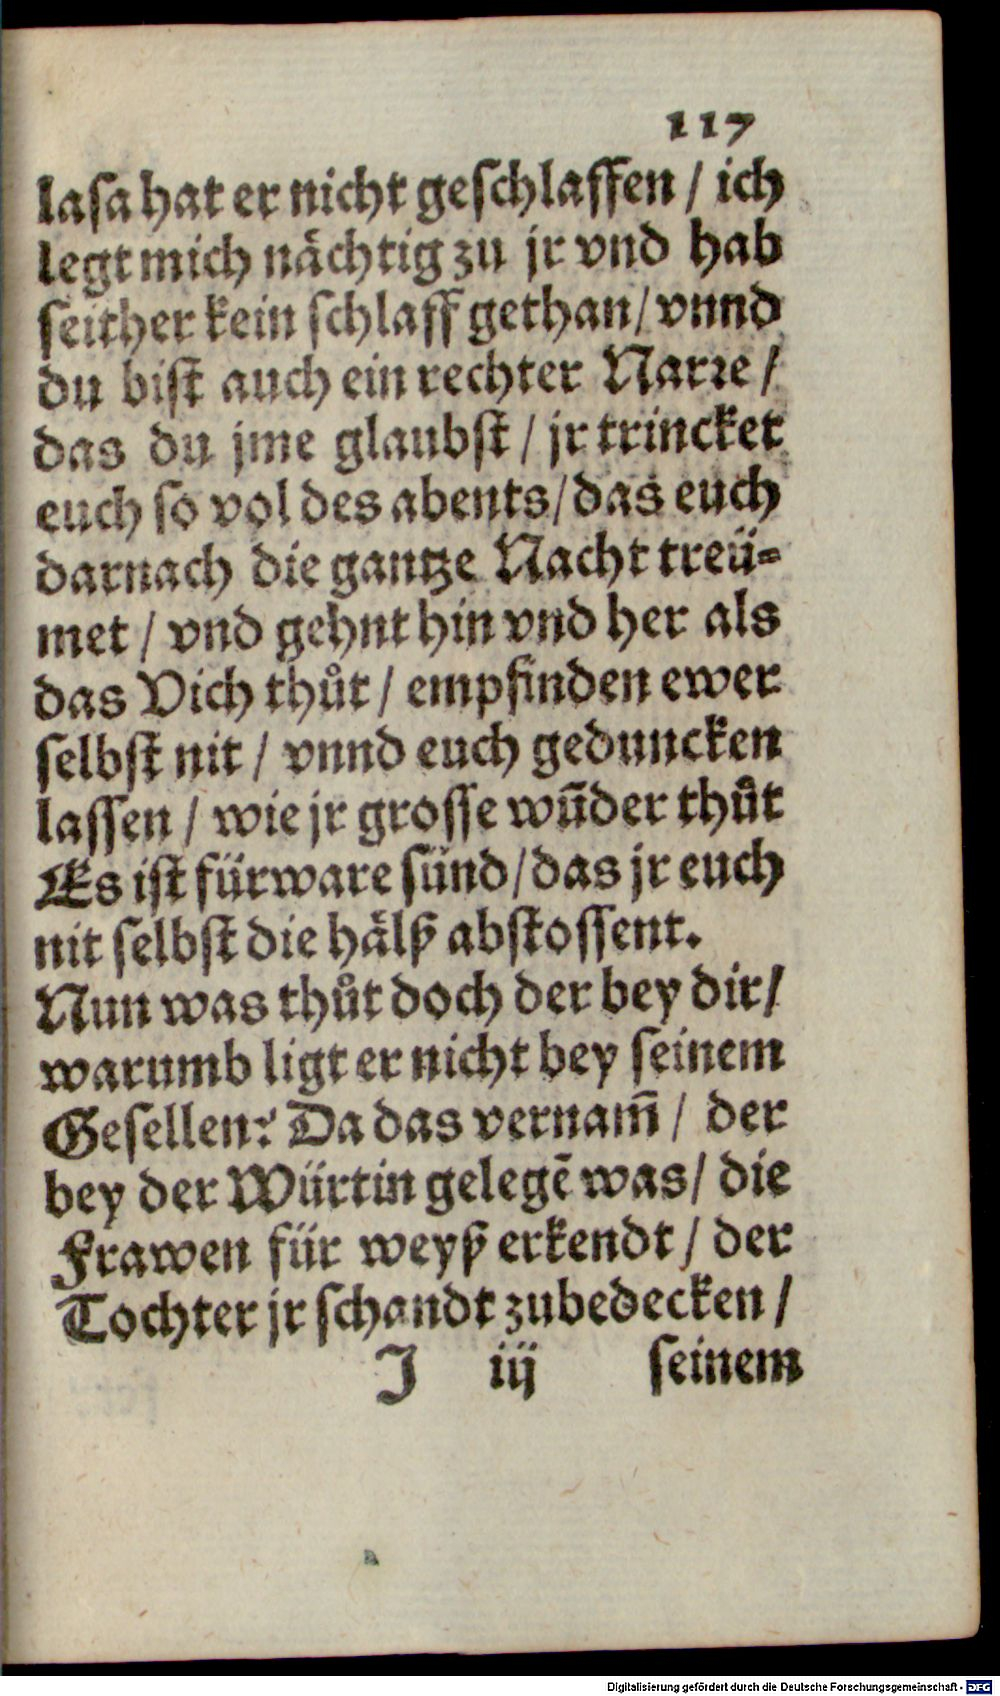 117
lasa hat er nicht geschlaffen / ich
legt mich nächtig zu jr vnd hab
seither kein schlaff gethan / vnnd
du bist auch ein rechter Narre /
das du jme glaubst / jr trincket
euch so vol des abents / das euch
darnach die gantze Nacht treü=
met / vnd gehnt hin vnd her als
das Vich thůt / empfinden ewer
selbst nit / vnnd euch geduncken
lassen / wie jr grosse wūder thůt
Es ist fürware sünd / das jr euch
nit selbst die hälß abstossent.
Nun was thůt doch der bey dir /
warumb ligt er nicht bey seinem
Gesellen? Da das vernam̄ / der
bey der Würtin gelegē was / die
Frawen für weyß erkendt / der
Tochter jr schandt zubedecken /
J iij seinem
Digitalisierung gefördert durch die Deutsche Forschungsgemeinschaft - DFG